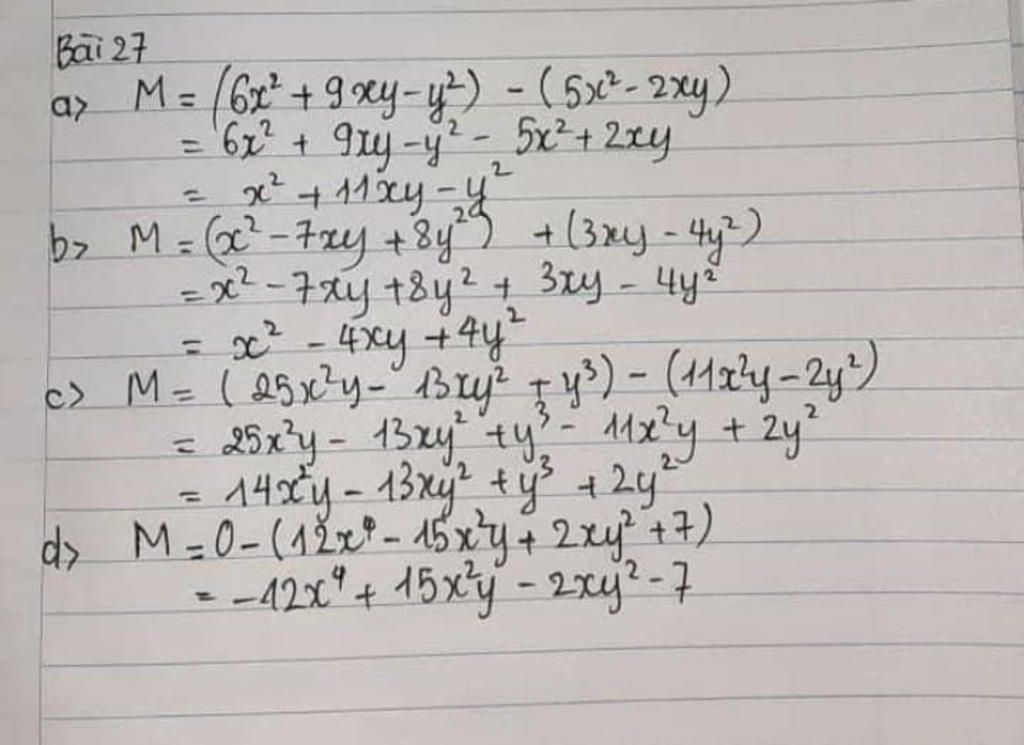 Bài 27
a> M = (6x² + 9xy - y²) - (5x² - 2xy)
= 6x² + 9xy - y² - 5x² + 2xy
= x² + 11xy - y²
b> M = (x² - 7xy + 8y²) + (3xy - 4y²)
= x² - 7xy + 8y² + 3xy - 4y²
= x² - 4xy + 4y²
c> M = (25x²y - 13xy² + y³) - (11x²y - 2y²)
= 25x²y - 13xy² + y³ - 11x²y + 2y²
= 14x²y - 13xy² + y³ + 2y²
d> M = 0 - (12x⁴ - 15x²y + 2xy² + 7)
= -12x⁴ + 15x²y - 2xy² - 7